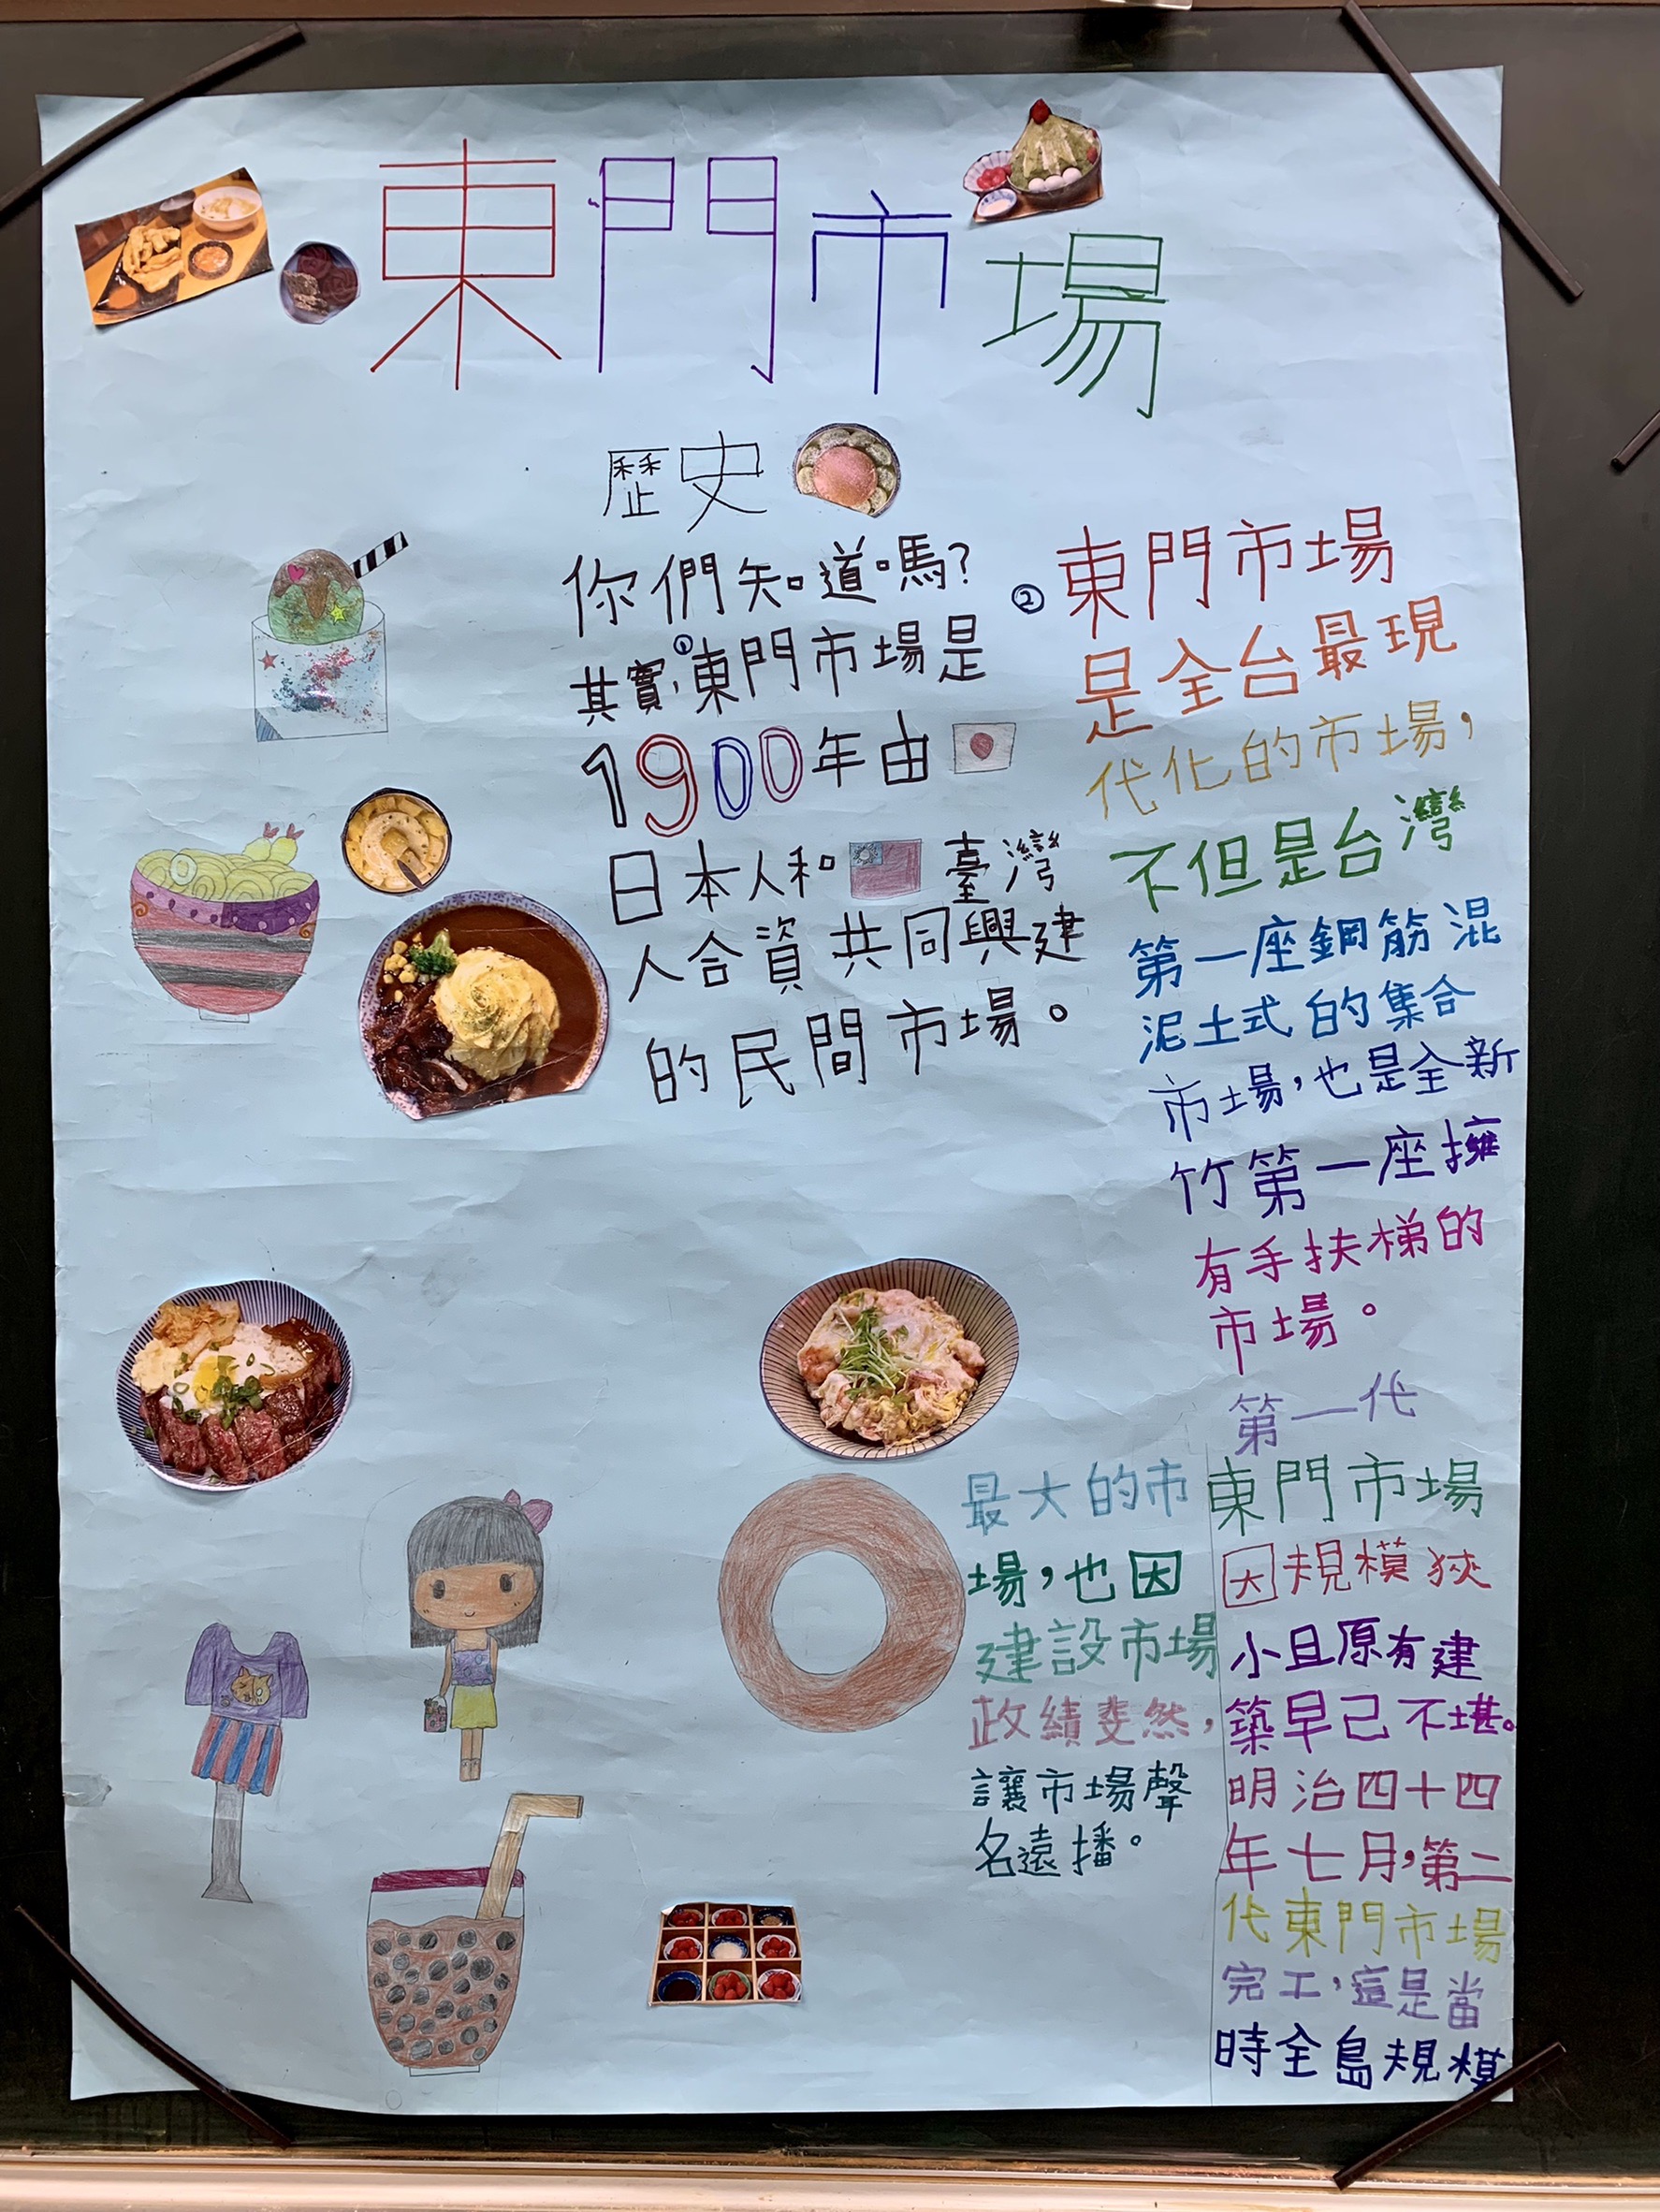 東門市場
歷史
你們知道嗎?
其實,①東門市場是
1900年由
日本人和臺灣
人合資共同興建
的民間市場。
②東門市場
是全台最現
代化的市場,
不但是台灣
第一座鋼筋混
泥土式的集合
市場,也是全新
竹第一座擁
有手扶梯的
市場。
第一代
東門市場
因規模狹
小且原有建
築早己不堪。
明治四十四
年七月,第二
代東門市場
完工,這是當
時全島規模
最大的市
場,也因
建設市場
政績斐然,
讓市場聲
名遠播。